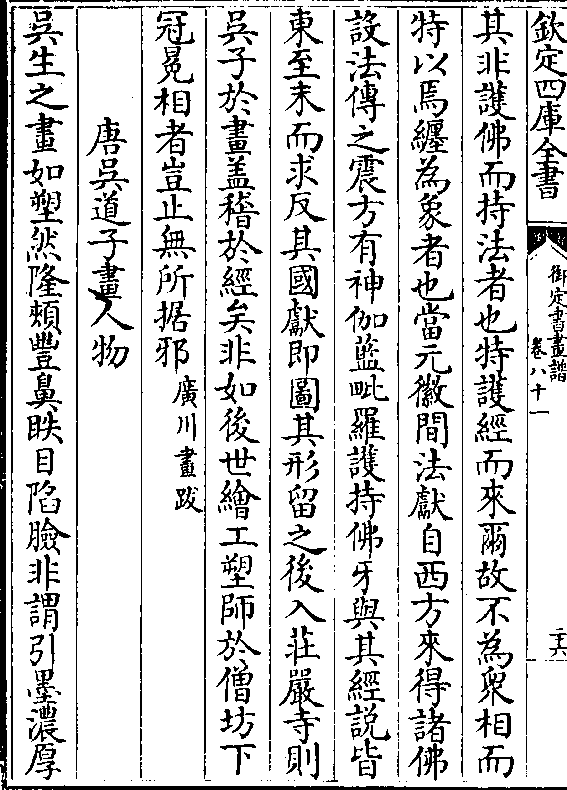 欽定四庫全書
御定書畫譜
卷八十一
二六
其非護佛而持法者也特護經而來爾故不為眾相而
特以馬纏為象者也當元徽間法獻自西方來得諸佛
設法傳之震方有神伽藍毗羅護持佛牙與其經說皆
東至末而求反其國獻即圖其形留之後入莊嚴寺則
吳子於畫盖稽於經矣非如後世繪工塑師於僧坊下
冠冕相者豈止無所据邪廣川畫跋
唐吳道子畫人物
吳生之畫如塑然隆頰豐鼻䀢目陷臉非謂引墨濃厚